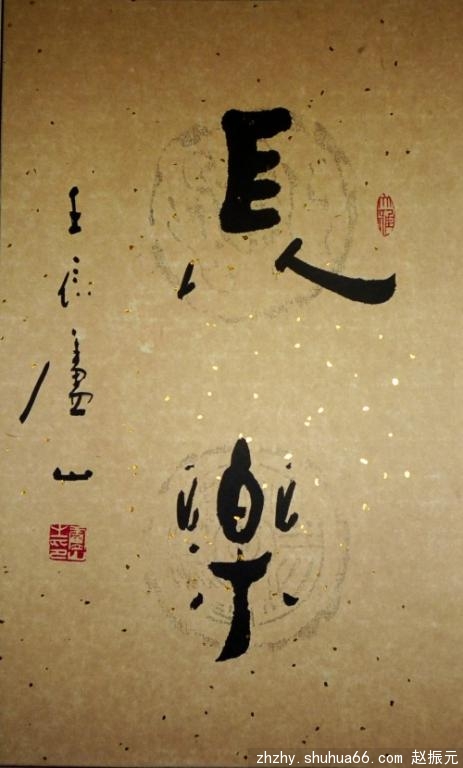 大雅
長樂
王廬山
zhzhy.shuhua66.com 赵振元